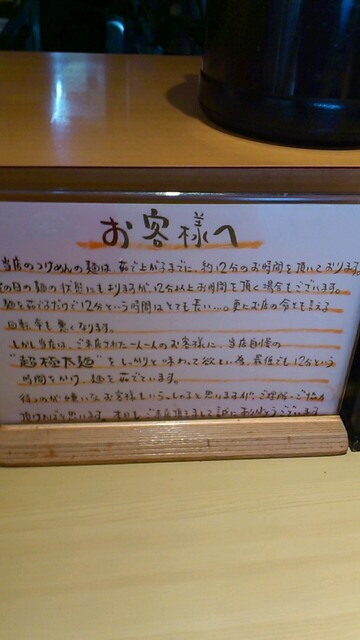 お客様へ
当店のつけめんの麺は茹で上がるまでに、約12分のお時間を頂いております。
の日の麺の状態にもよりますが、12分以上お時間を頂く場合もございます。
麺を茹でるだけで12分という時間はとても長い…更にお店の命とも言える
回転率も悪くなります。
しかし当店は、ご来店された一人一人のお客様に、当店自慢の
"超極太麺"をしっかりと味わって欲しい為、最低でも12分という
時間をかけ、麺を茹でています。
待つのが嫌いなお客様もいらっしゃると思いますが、ご理解・ご協力
頂ければと思います。本日もご来店頂きまして誠にありがとうございます